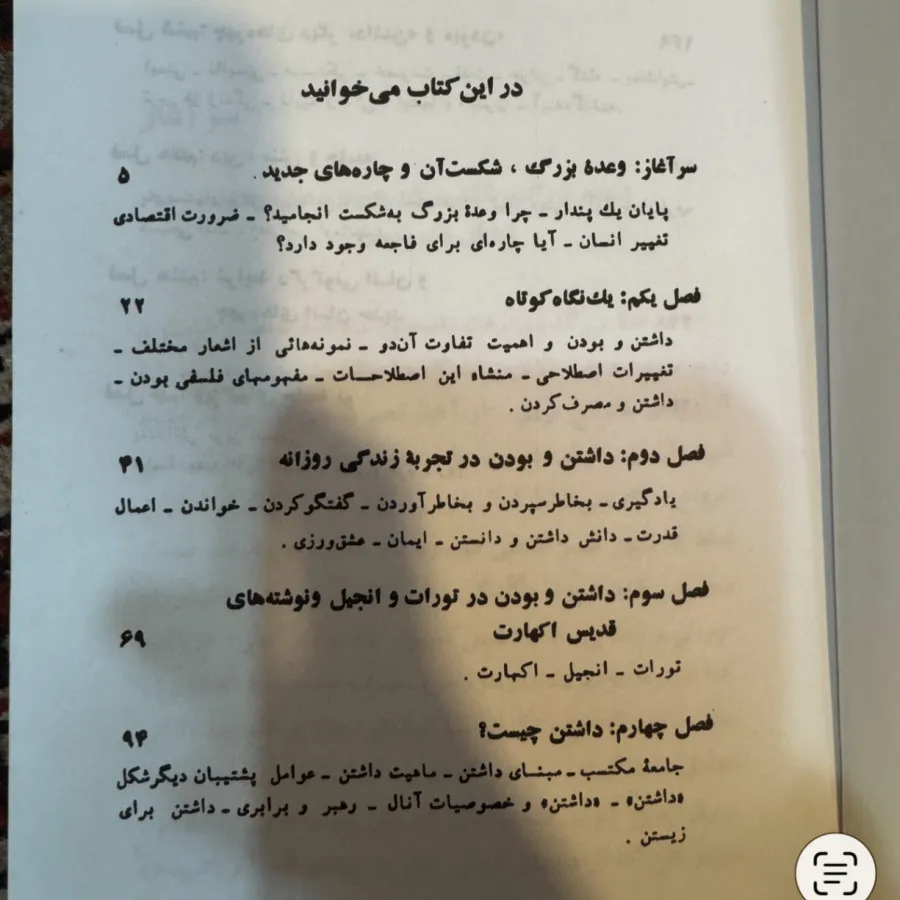 در این کتاب می‌خوانید
سرآغاز: وعدهٔ بزرگ ، شکست‌آن و چاره‌های جدید . ۵
پایان یك پندار ـ چرا وعدهٔ بزرگ به‌شکست انجامید؟ ـ ضرورت اقتصادی
تغییر انسان ـ آیا چاره‌ای برای فاجعه وجود دارد؟
فصل یکم: یك‌نگاه‌کوتاه ۲۲
داشتن و بودن و اهمیت تفاوت آن‌دو ـ نمونه‌هائی از اشعار مختلف ـ
تغییرات اصطلاحی ـ منشاء این اصطلاحــات ـ مفهومهای فلسفی بودن ـ
داشتن و مصرف‌کردن .
فصل دوم: داشتن و بودن در تجربهٔ زندگی روزانه ۴۱
یادگیری ـ بخاطرسپردن و بخاطرآوردن ـ گفتگوکردن ـ خواندن ـ اعمال
قدرت ـ دانش داشتن و دانستن ـ ایمان ـ عشق‌ورزی .
فصل سوم: داشتن و بودن در تورات و انجیل ونوشته‌های
قدیس اکهارت ۶۹
تورات ـ انجیل ـ اکهارت .
فصل چهارم: داشتن چیست؟ ۹۴
جامعهٔ مکتسب ـ مبنـای داشتن ـ ماهیت داشتن ـ عوامل پشتیبان دیگرشکل
«داشتن» ـ «داشتن» و خصوصیات آنال ـ رهبر و برابری ـ داشتن برای
زیستن .